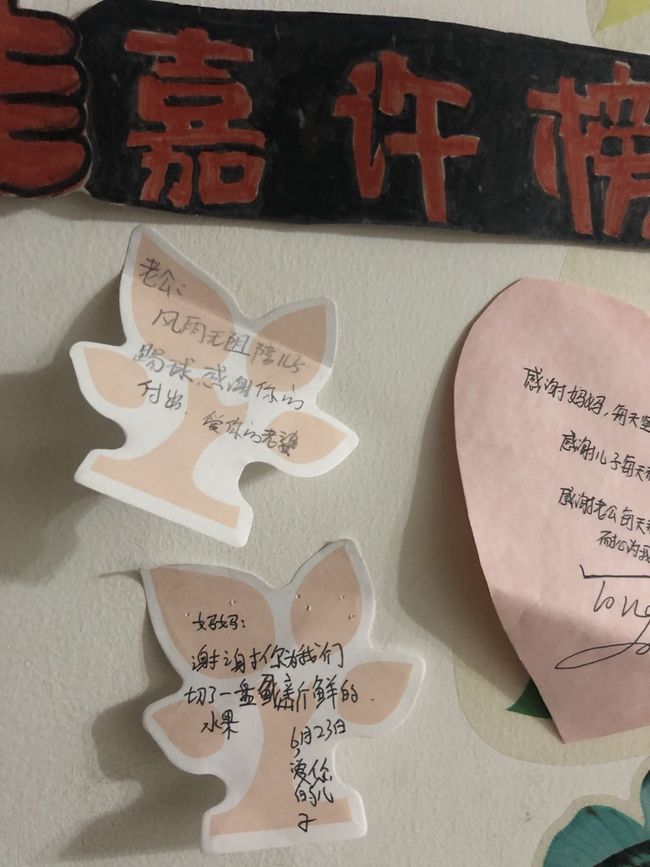 嘉许榜
老公：
风雨无阻陪儿子
踢球,感谢你的
付出。 爱你的老婆
妈妈：
谢谢你为我们
切了一盘新鲜的
水果
6月23日
爱你
的儿
子
感谢妈妈，每天
感谢儿子每天
感谢老公每天
耐心为我